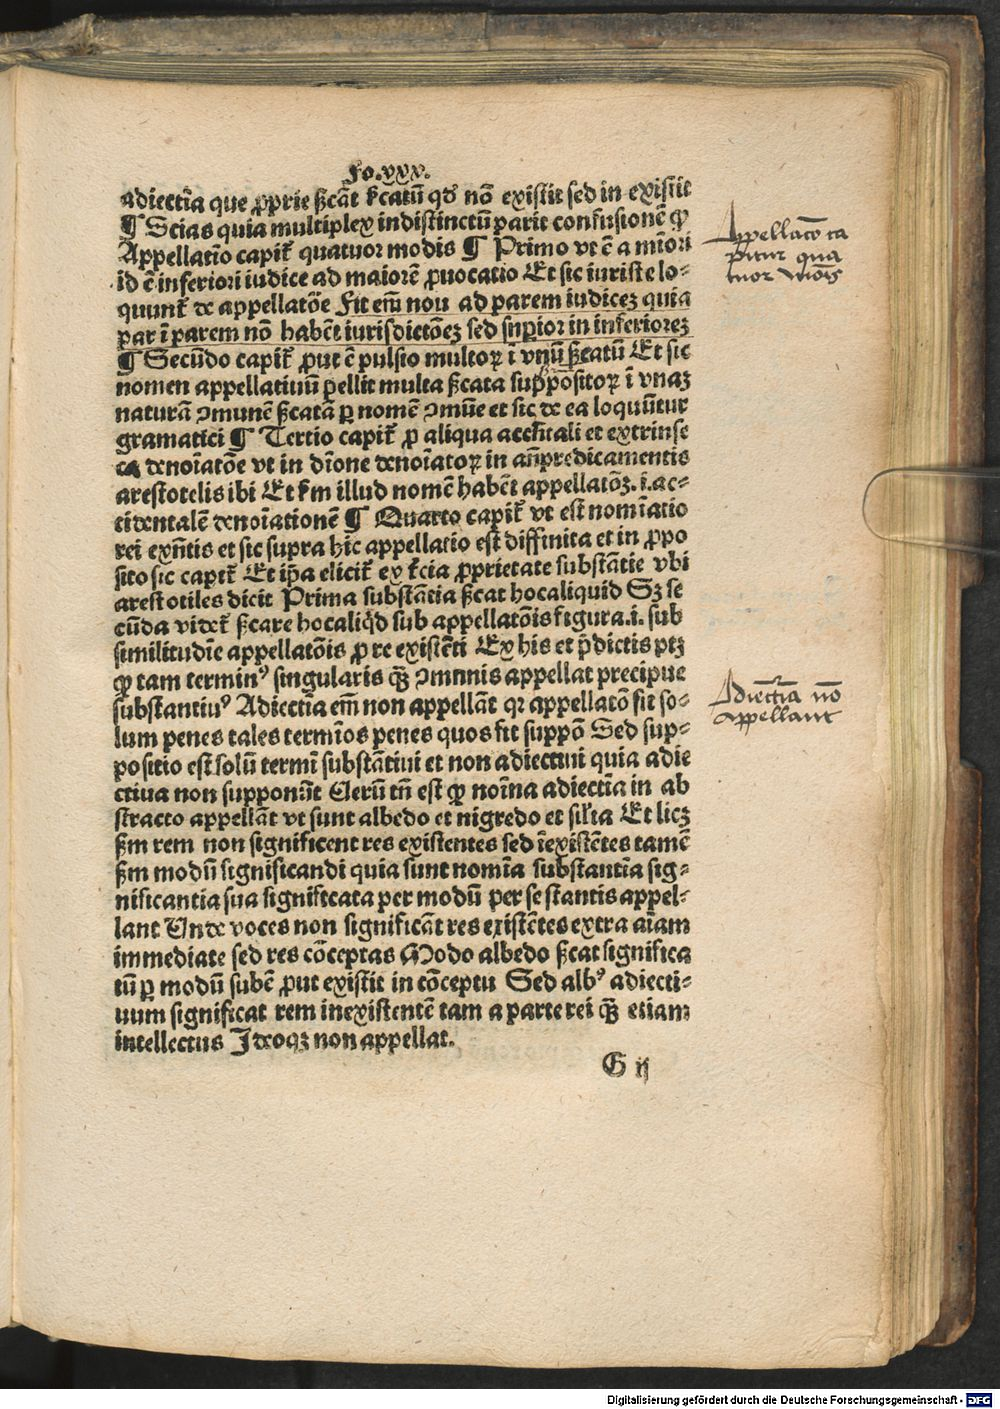 Fo.xxx.
adiectīa que ꝓprie ſīcāt ſīcatū qđ nō existit sed in existit
¶ Scias quia multiplex indistinctū parit confusionē ꝙ
Appellatio capit᷑ quatuor modis ¶ Primo vt ē a mīori
id ē inferiori iudice ad maiorē ꝓuocatio Et sic iuriste lo⸗
quunt᷑ de appellatōe Fit em̄ nou ad parem iudicez quia
par ī parem nō habēt iurisdictōez sed suꝑior in inferiorez
¶ Secūdo capit᷑ ꝓut ē pulsio multoꝝ ī vnū ſīcatū Et sic
nomen appellatiuū ꝑellit multa ſīcata suppositoꝝ ī vnaz
naturā ꝯmunē ſīcatā ꝑ nomē ꝯmūe et sic de ea loquūtur
gramatici ¶ Tertio capit᷑ ꝓ aliqua accn̄tali et extrinse
ca denoīatōe vt in dīone denoīatoꝝ in an̄predicamentis
arestotelis ibi Et ſm illud nomē habēt appellatōz .i. ac⸗
cidentalē denoīationē ¶ Quarto capit᷑ vt est nomīatio
rei exn̄tis et sic supra hic appellatio est diffinita et in ꝓpo
sito sic capit᷑ Et ip̄a elicit᷑ ex t̄cia ꝓprietate substātie vbi
arestotiles dicit Prima substātia ſīcat hocaliquid Sz se
cūda videt᷑ ſīcare hocaliq̄d sub appellatōis figura .i. sub
similitudīe appellatōis ꝓ re existēti Ex his et p̄dictis ptz
ꝙ tam terminꝰ singularis q̄ȝ ꝯmnnis appellat precipue
substantiuꝰ Adiectīa em̄ non appellāt qꝛ appellatō fit so⸗
lum penes tales termīos penes quos fit suppō Sed sup⸗
positio est solū termī substātiui et non adiectiui quia adie
ctiua non supponūt Uerū tn̄ est ꝙ noīna adiectīa in ab
stracto appellāt vt sunt albedo et nigredo et sil̄ia Et licz
ſm rem non significent res existentes sed īexistētes tamē
ſm modū significandi quia sunt nomīa substantīa sig⸗
nificantia sua significata per modū per se stantis appel⸗
lant Unde voces non significāt res existētes extra aīam
immediate sed res cōceptas Modo albedo ſīcat significa
tū ꝑ modū subē ꝓut existit in cōceptu Sed albꝰ adiecti⸗
uum significat rem inexistentē tam a parte rei q̄ȝ etiam
intellectus Ideoqz non appellat.
G ij
Appellatō ca
pitur qua
tuor modis
Adiectīa nō
appellant
Digitalisierung gefördert durch die Deutsche Forschungsgemeinschaft - DFG